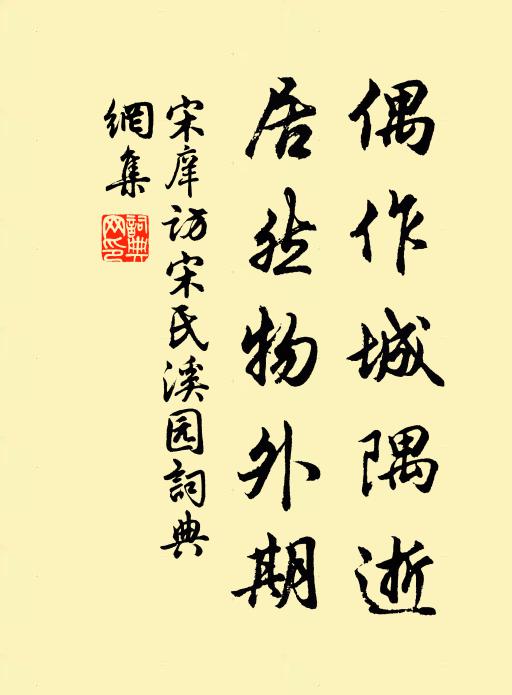 偶作城隅逝
居然物外期
宋庠访宋氏溪园詞典
網集
詞典
网印